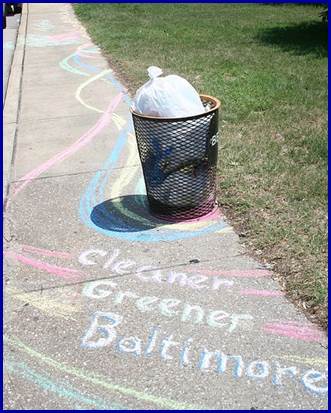 Cleaner
Greener
Baltimore